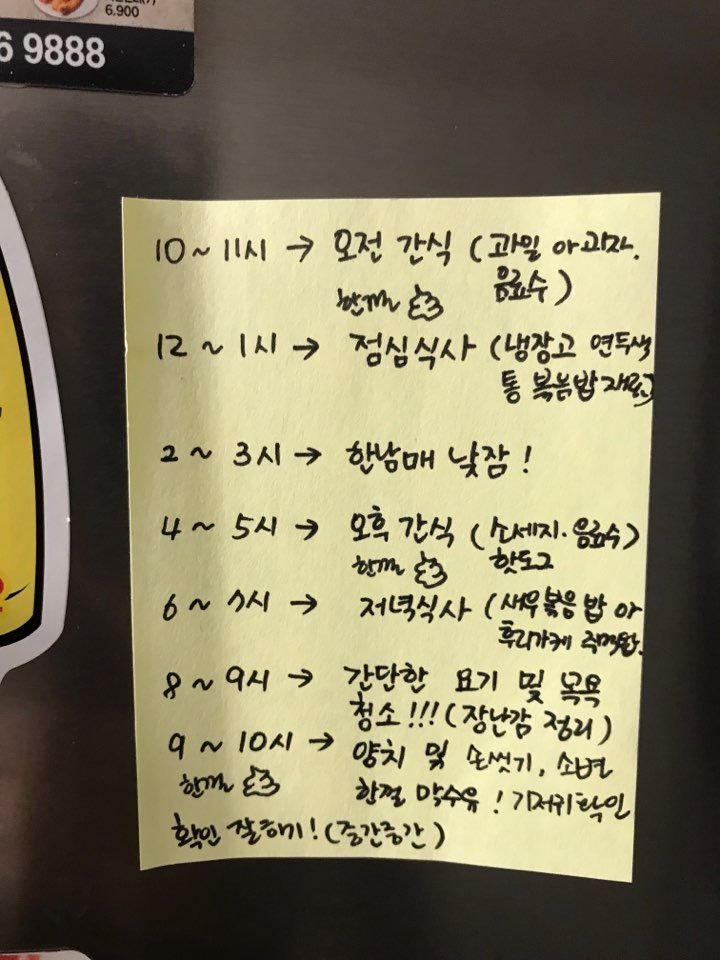 6,900
6 9888
10 ~ 11시 → 오전 간식 (과일 아 과자.
음료수)
한껄
12 ~ 1시 → 점심식사 (냉장고 연두색
통 볶음밥 재료)
2 ~ 3시 → 한남매 낮잠!
4 ~ 5시 → 오후 간식 (소세지·음료수)
한껄 핫도그
6 ~ 7시 → 저녁식사 (새우볶음밥 or
후리가케 주먹밥.
8 ~ 9시 → 간단한 요기 및 목욕
청소!!! (장난감 정리)
9 ~ 10시 → 양치 및 손씻기, 소변
한껄 막수유! 기저귀확인
확인 잘하기! (중간중간)